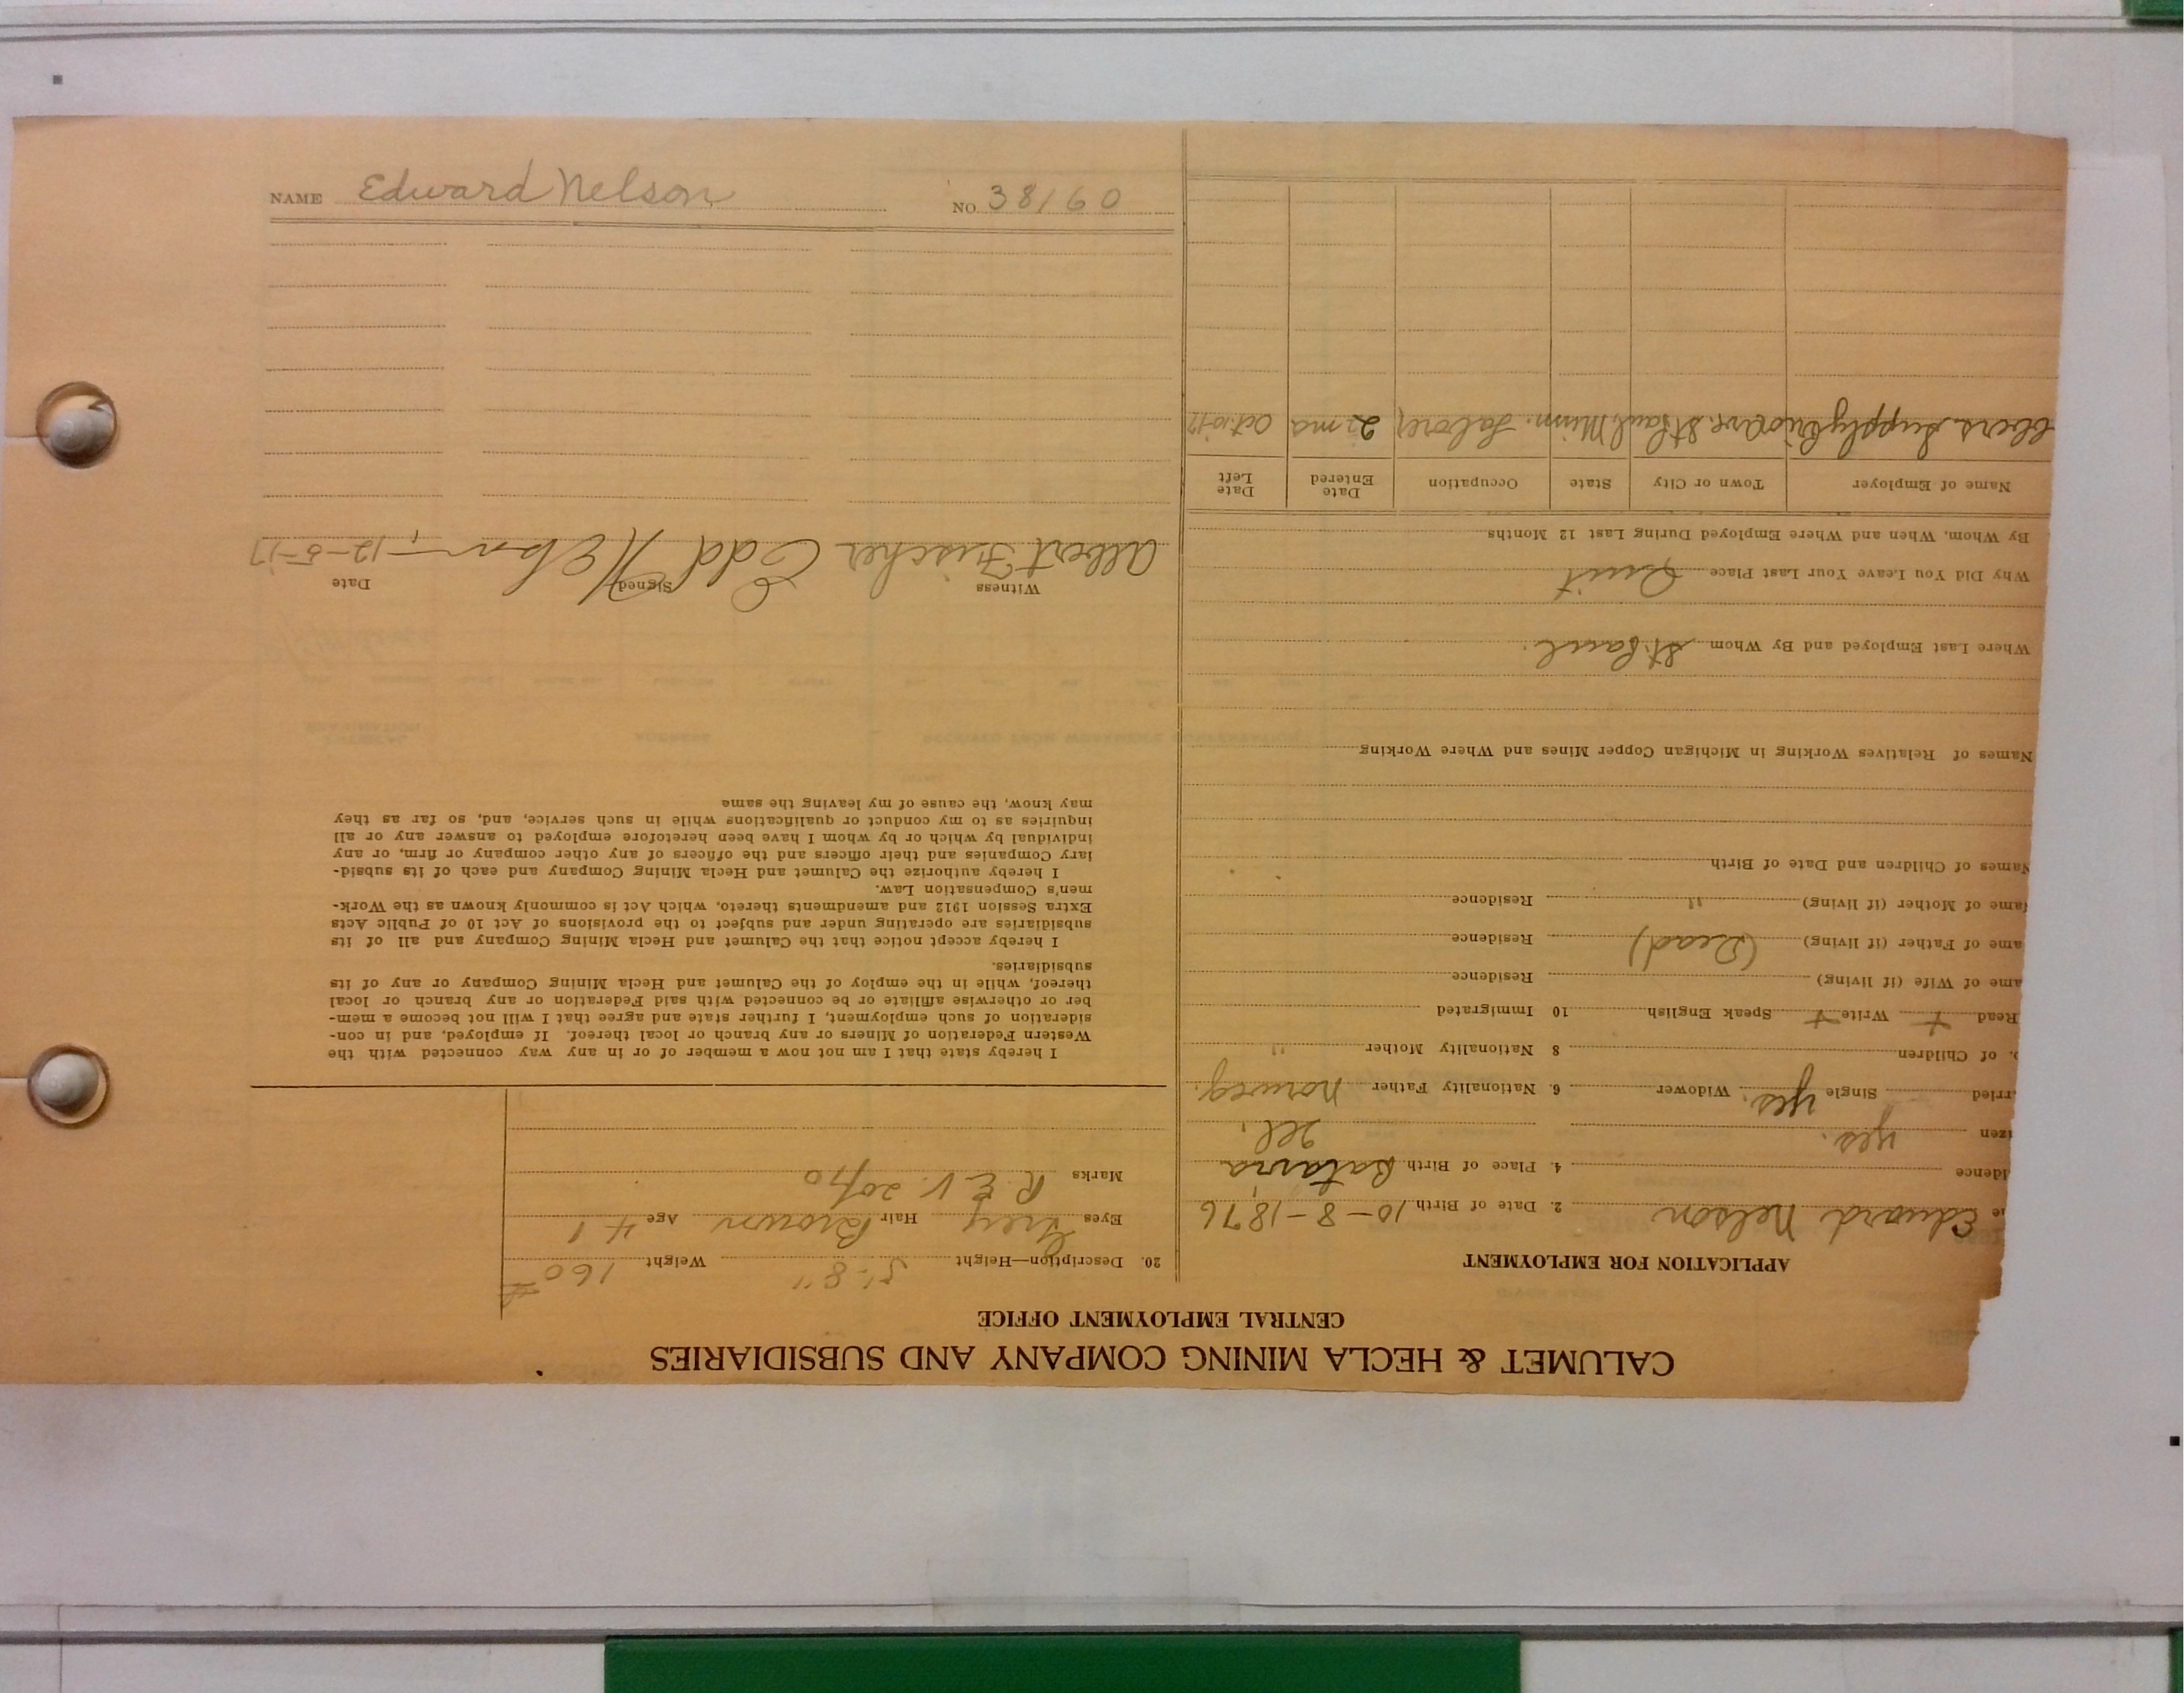 NAME Edward Nelson NO. 38160
CALUMET & HECLA MINING COMPANY AND SUBSIDIARIES
CENTRAL EMPLOYMENT OFFICE
APPLICATION FOR EMPLOYMENT
Edward Nelson 2. Date of Birth 10-8-1876
idence 4. Place of Birth Batavia
izen yes. Ill.
rried Single yes. Widower 6. Nationality Father Norweg.
of Children 8 Nationality Mother "
Read + Write + Speak English 10 Immigrated
ame of Wife (if living) Residence
ame of Father (if living) (Dead) Residence
ame of Mother (if living) " Residence
Names of Children and Date of Birth
Names of Relatives Working in Michigan Copper Mines and Where Working
Where Last Employed and By Whom St. Paul.
Why Did You Leave Your Last Place Quit
By Whom, When and Where Employed During Last 12 Months
Name of Employer Town or City State Occupation Date Entered Date Left
Supply St Paul Minn. Laborer 2 mo Oct. 10-17
20. Description—Height 5'-8" Weight 160#
Eyes Grey Hair Brown Age 41
Marks R.E.V. 20/70
I hereby state that I am not now a member of or in any way connected with the
Western Federation of Miners or any branch or local thereof. If employed, and in con-
sideration of such employment, I further state and agree that I will not become a mem-
ber or otherwise affiliate or be connected with said Federation or any branch or local
thereof, while in the employ of the Calumet and Hecla Mining Company or any of its
subsidiaries.
I hereby accept notice that the Calumet and Hecla Mining Company and all of its
subsidiaries are operating under and subject to the provisions of Act 10 of Public Acts
Extra Session 1912 and amendments thereto, which Act is commonly known as the Work-
men's Compensation Law.
I hereby authorize the Calumet and Hecla Mining Company and each of its subsid-
iary Companies and their officers and the officers of any other company or firm, or any
individual by which or by whom I have been heretofore employed to answer any or all
inquiries as to my conduct or qualifications while in such service, and, so far as they
may know, the cause of my leaving the same
Witness Signed Date
Albert Fischer Edd Nelson 12-5-17